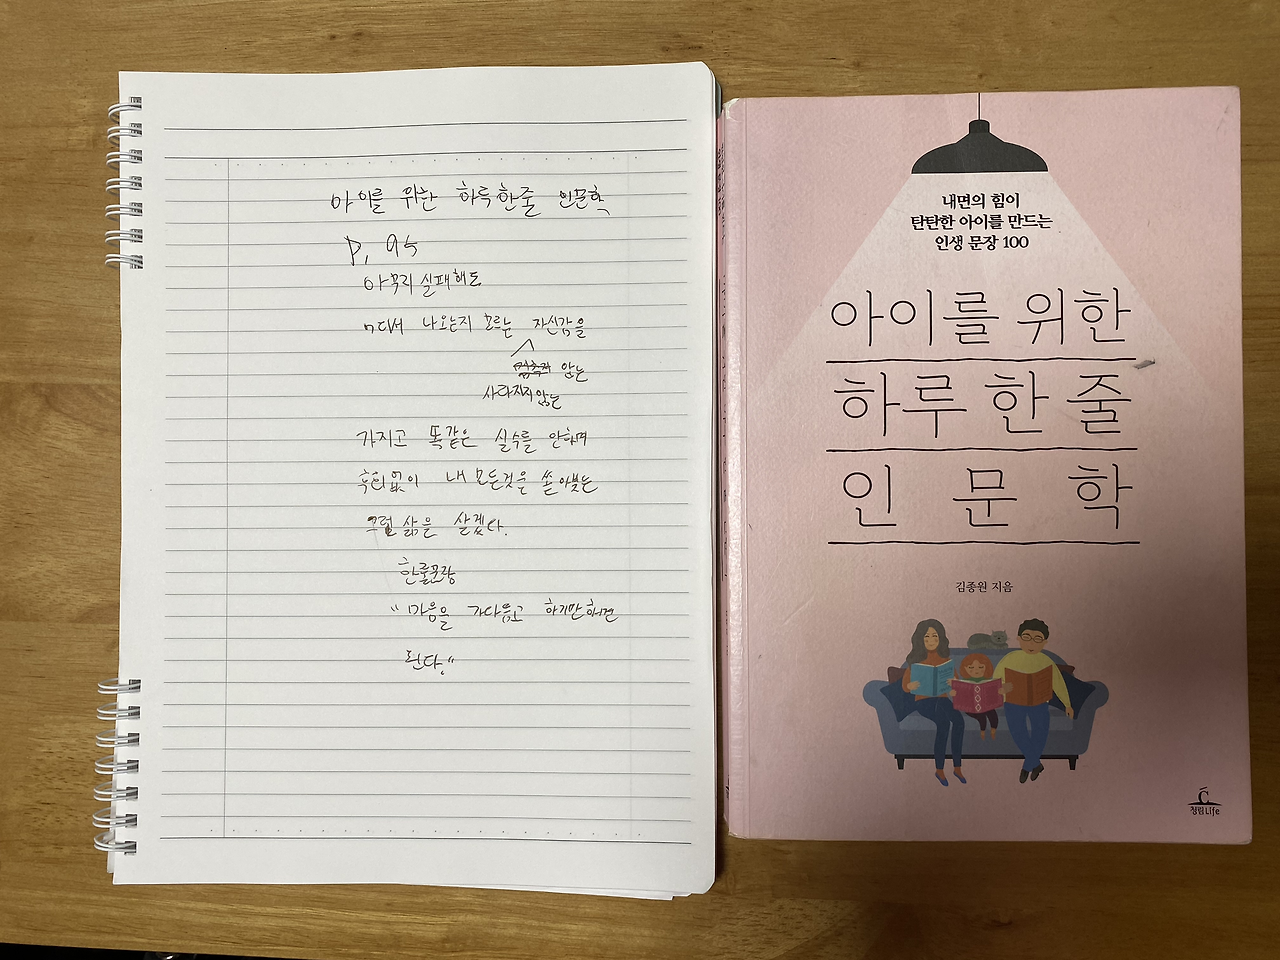 아이를 위한 하루 한줄 인문학
P, 95
아무리 실패해도
어디서 나오는지 모르는 자신감을
않는
사라지지 않는
가지고 똑같은 실수를 안하며
후회없이 내 모든것을 쏟아붓는
그런 삶을 살겠다.
한줄문장
"마음을 가다듬고 하기만하면
된다."
내면의 힘이
탄탄한 아이를 만드는
인생 문장 100
아이를 위한
하루 한 줄
인 문 학
김종원 지음
청림Life